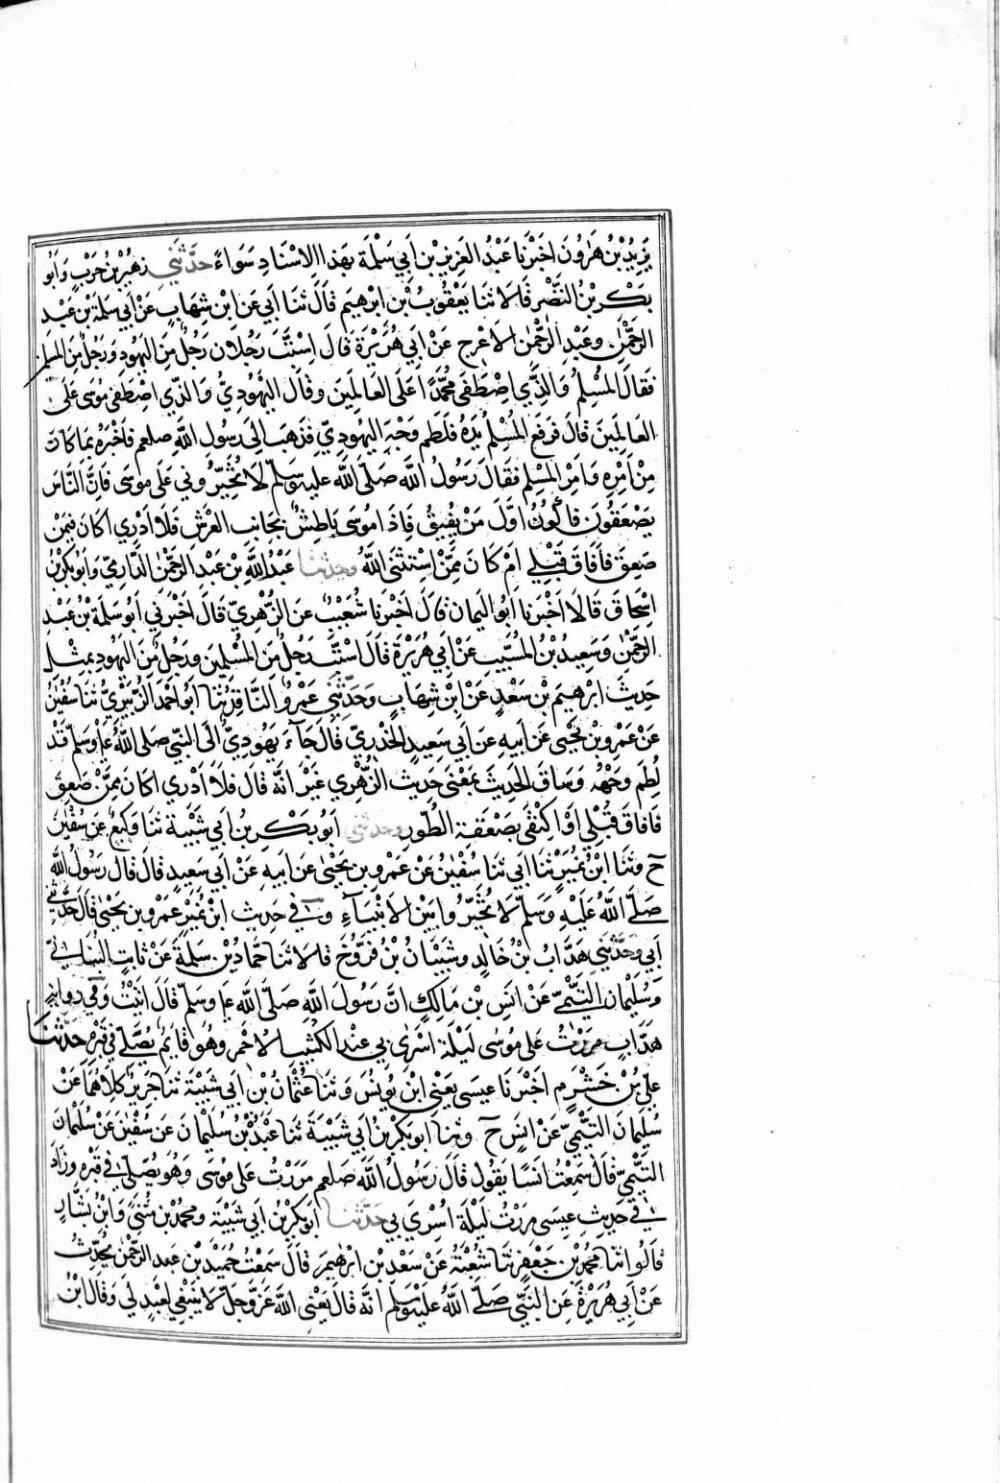 يَزِيدُ بْنُ هٰرُونَ اَخْبَرَنَا عَبْدُ الْعَزِيزِ بْنِ اَبِي سَلَمَةَ بِهَذَا الاِسْنَادِ سَوَاءً حَدَّثَنِي زهَيْرُ بْنُ حَرْبٍ وَاَبُو
بَكْرِ بْنُ النَّضْرِ قَالَا ثنَا يَعْقُوبُ بْنِ ابْرهِيمَ قَالَ ثنَا اَبِي عَنِ ابْنِ شِهَابٍ عَنْ اَبِي سَلَمَةَ بْنِ عَبْدِ
الرَّحْمٰنِ وعَبْدِ الرَّحْمٰنِ الاَعْرجِ عَنْ اَبِي هُرَيْرَةَ قَالَ اِسْتَبَّ رَجُلَانِ رَجُلٌ مِنَ اليَهُودِ وَرَجُلٌ مِنَ المسلم
فقَالَ المُسْلِمُ وَالَّذِي اِصْطَفَى مُحَمَّدًا عَلَى العَالَمِينَ وقَالَ اليَهُودِيُّ وَالَّذِي اصْطَفَى مُوسَى عَلَى
العَالَمِينَ قالَ فَرفَعَ المُسْلِمُ يَدَهُ فَلَطَمَ وَجْهَ اليهُودِيِّ فَذَهَبَ اِلَى رَسُولِ اللّٰهِ صلعم فَاَخْبَرَهُ بمَا كَانَ
مِنْ اَمْرِهِ وَاَمْرِ المُسْلِمِ فقَالَ رَسُولُ اللّٰهِ صَلَّى اللّٰهُ عليهِ وسلّم لَا تُخَيِّرُونِي عَلَى مُوسَى فَاِنَّ النَّاسَ
يَصْعَقُونَ فَاَكُونُ اَوَّلَ مَنْ يُفِيقُ فَاِذَا مُوسَى بَاطِشٌ بجَانبِ العَرْشِ فَلَا اَدْرِي اَكَانَ فِيمَنْ
صَعِقَ فَاَفَاقَ قَبْلِي اَمْ كَانَ مِمَّنْ اسْتَثْنَى اللّٰهُ وحَدَّثنَا عَبْدُ اللّٰهِ بْنِ عَبْدِ الرَّحْمٰنِ الدَّارِمِيّ وَاَبُو بَكْرِ بْنُ
اِسْحَاقَ قَالَا اَخْبَرَنا اَبُو اليَمانِ قَالَ اَخْبَرَنَا شُعَيْبٌ عَنِ الزُّهْرِيّ قَالَ اَخْبَرَنِي اَبُو سَلَمَةَ بْنُ عَبْدِ
الرَّحْمٰنِ وَسَعِيدُ بْنُ المُسَيِّبِ عَنْ اَبِي هُرَيْرَةَ قَالَ اسْتَبَّ رَجُلٌ مِنَ المُسْلِمِينَ وَرَجُلٌ مِنَ اليَهُودِ بمِثْلِ
حَدِيثِ ابْرهِيمَ بْنِ سَعْدٍ عَنِ ابْنِ شِهَابٍ وَحَدَّثَنِي عَمْرٌو النَّاقِدُ ثنَا اَبُو اَحْمَدَ الزُّبَيْرِيُّ ثنَا سُفْيٰنُ
عَنْ عَمْرِو بْنِ يَحْيَى عَنْ اَبِيهِ عَنْ اَبِي سَعِيدٍ الخُدْرِيّ قَالَ جَآءَ يَهُودِيٌّ اِلَى النَّبِيّ صَلَّى اللّٰهُ عَلَ وسلّم قَدْ
لُطِمَ وَجْهُهُ وَسَاقَ الحَدِيثَ بمَعْنَى حَدِيثِ الزُّهْرِي غَيْرَ اَنَّهُ قالَ فلَا اَدْرِي اكَانَ مِمَّنْ صَعِقَ
فَافَاقَ قَبْلِي اَوْ اكْتَفَى بصَعْقَةِ الطُّورِ وحَدَّثَنِي اَبُو بَكْرِ بْنُ اَبِي شَيْبَةَ ثنَا وَكِيعٌ عَنْ سُفْيٰنَ
ح وَثنَا ابْنُ نُمَيْرٍ ثنَا اَبِي ثنَا سُفْيٰنُ عَنْ عَمْرِو بْنِ يَحْيَى عَنْ اَبِيهِ عَنْ اَبِي سَعِيدٍ قالَ قَالَ رَسُولُ اللّٰهِ
صَلَّى اللّٰهُ عَلَيْهِ وَسَلَّم لَا تُخَيِّرُوا بَيْنَ الاَنْبِيَآءِ وَفِي حَدِيثِ ابْنِ نُمَيْرٍ عَمْرِو بْنِ يَحْيَى قَالَ حَدَّثَنِي
اَبِي وَحَدَّثَنِي هَدَّابُ بْنُ خَالِدٍ وشَيْبَانُ بْنُ فَرُّوخَ قالَا ثنَا حَمَّادُ بْنُ سَلَمَةَ عَنْ ثَابتٍ البُنَانِيّ
وَسُلَيمانَ التَّيْمِيّ عَنْ اَنَسِ بْنِ مَالِكٍ انَّ رَسُولَ اللّٰهِ صَلَّى اللّٰهُ عَلَ وسَلّم قَالَ اَتَيْتُ وَفِي رِوايَةِ
هَدَّابٍ مَرَرْتُ عَلَى مُوسَى لَيْلَةَ اُسْرِيَ بِي عِنْدَ الكَثِيبِ الاَحْمَرِ وهُوَ قَايِمٌ يُصَلِّي فِي قَبْرِهِ حَدَّثَنَا
عَلِيُّ بْنُ خَشْرَمٍ اَخْبَرَنَا عِيسَى يَعْنِي ابْنَ يُونُسَ وَثنَا عُثْمَانُ بْنُ اَبِي شَيْبَةَ ثنَا جَرِيرٌ كِلَاهُمَا عَنْ
سُلَيمَانَ التَّيْمِيّ عَنْ اَنَسٍ ح وثنَا ابوبَكْرِ بْنُ اَبِي شَيْبَةَ ثنَا عَبْدَةُ بْنُ سُلَيْمَانَ عَنْ سُفْيٰنَ عَنْ سُلَيْمانَ
التَّيْمِيّ قَالَ سَمِعْتُ اَنَسًا يَقُولُ قَالَ رَسُولُ اللّٰهِ صلعم مَرَرْتُ عَلَى مُوسَى وَهُوَ يُصَلِّي فِي قَبْرِهِ وزَادَ
فِي حَدِيثِ عِيسَى مرَرْتُ لَيْلَةَ اُسْرِيَ بِي حَدَّثنَا اَبُو بَكْرِ بْنُ اَبِي شَيْبَةَ ومُحمَّدُ بْنُ مُثَنًى وَابْنُ بَشَّارٍ
قَالُوا ثنَا مُحَمَّدُ بْنُ جَعْفَرٍ ثنَا شُعْبَةُ عَنْ سَعْدِ بْنِ ابْرٰهيمَ قَالَ سَمعْتُ حُمَيْدَ بْنَ عَبدِ الرَّحْمٰنِ يُحَدِّثُ
عَنْ اَبِي هُرَيْرَةَ عَنِ النَّبِيّ صَلَّى اللّٰهُ عليهِ وسلّم اَنَّهُ قَالَ يَعْنِي اللّٰهَ عَزَّ وَجلَّ لَا يَنْبَغِي لِعَبْدٍ لِي وَقالَ ابْنُ